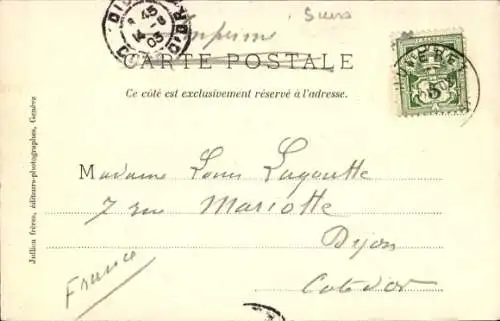 Suisse
Imprimé
CARTE POSTALE
Ce côté est exclusivement réservé à l'adresse.
Madame Louis Lagoutte
7 rue Mariotte
Dijon
Cote d'or
France
Jullien frères, éditeurs-photographes, Genève
DIJON
45
03
5